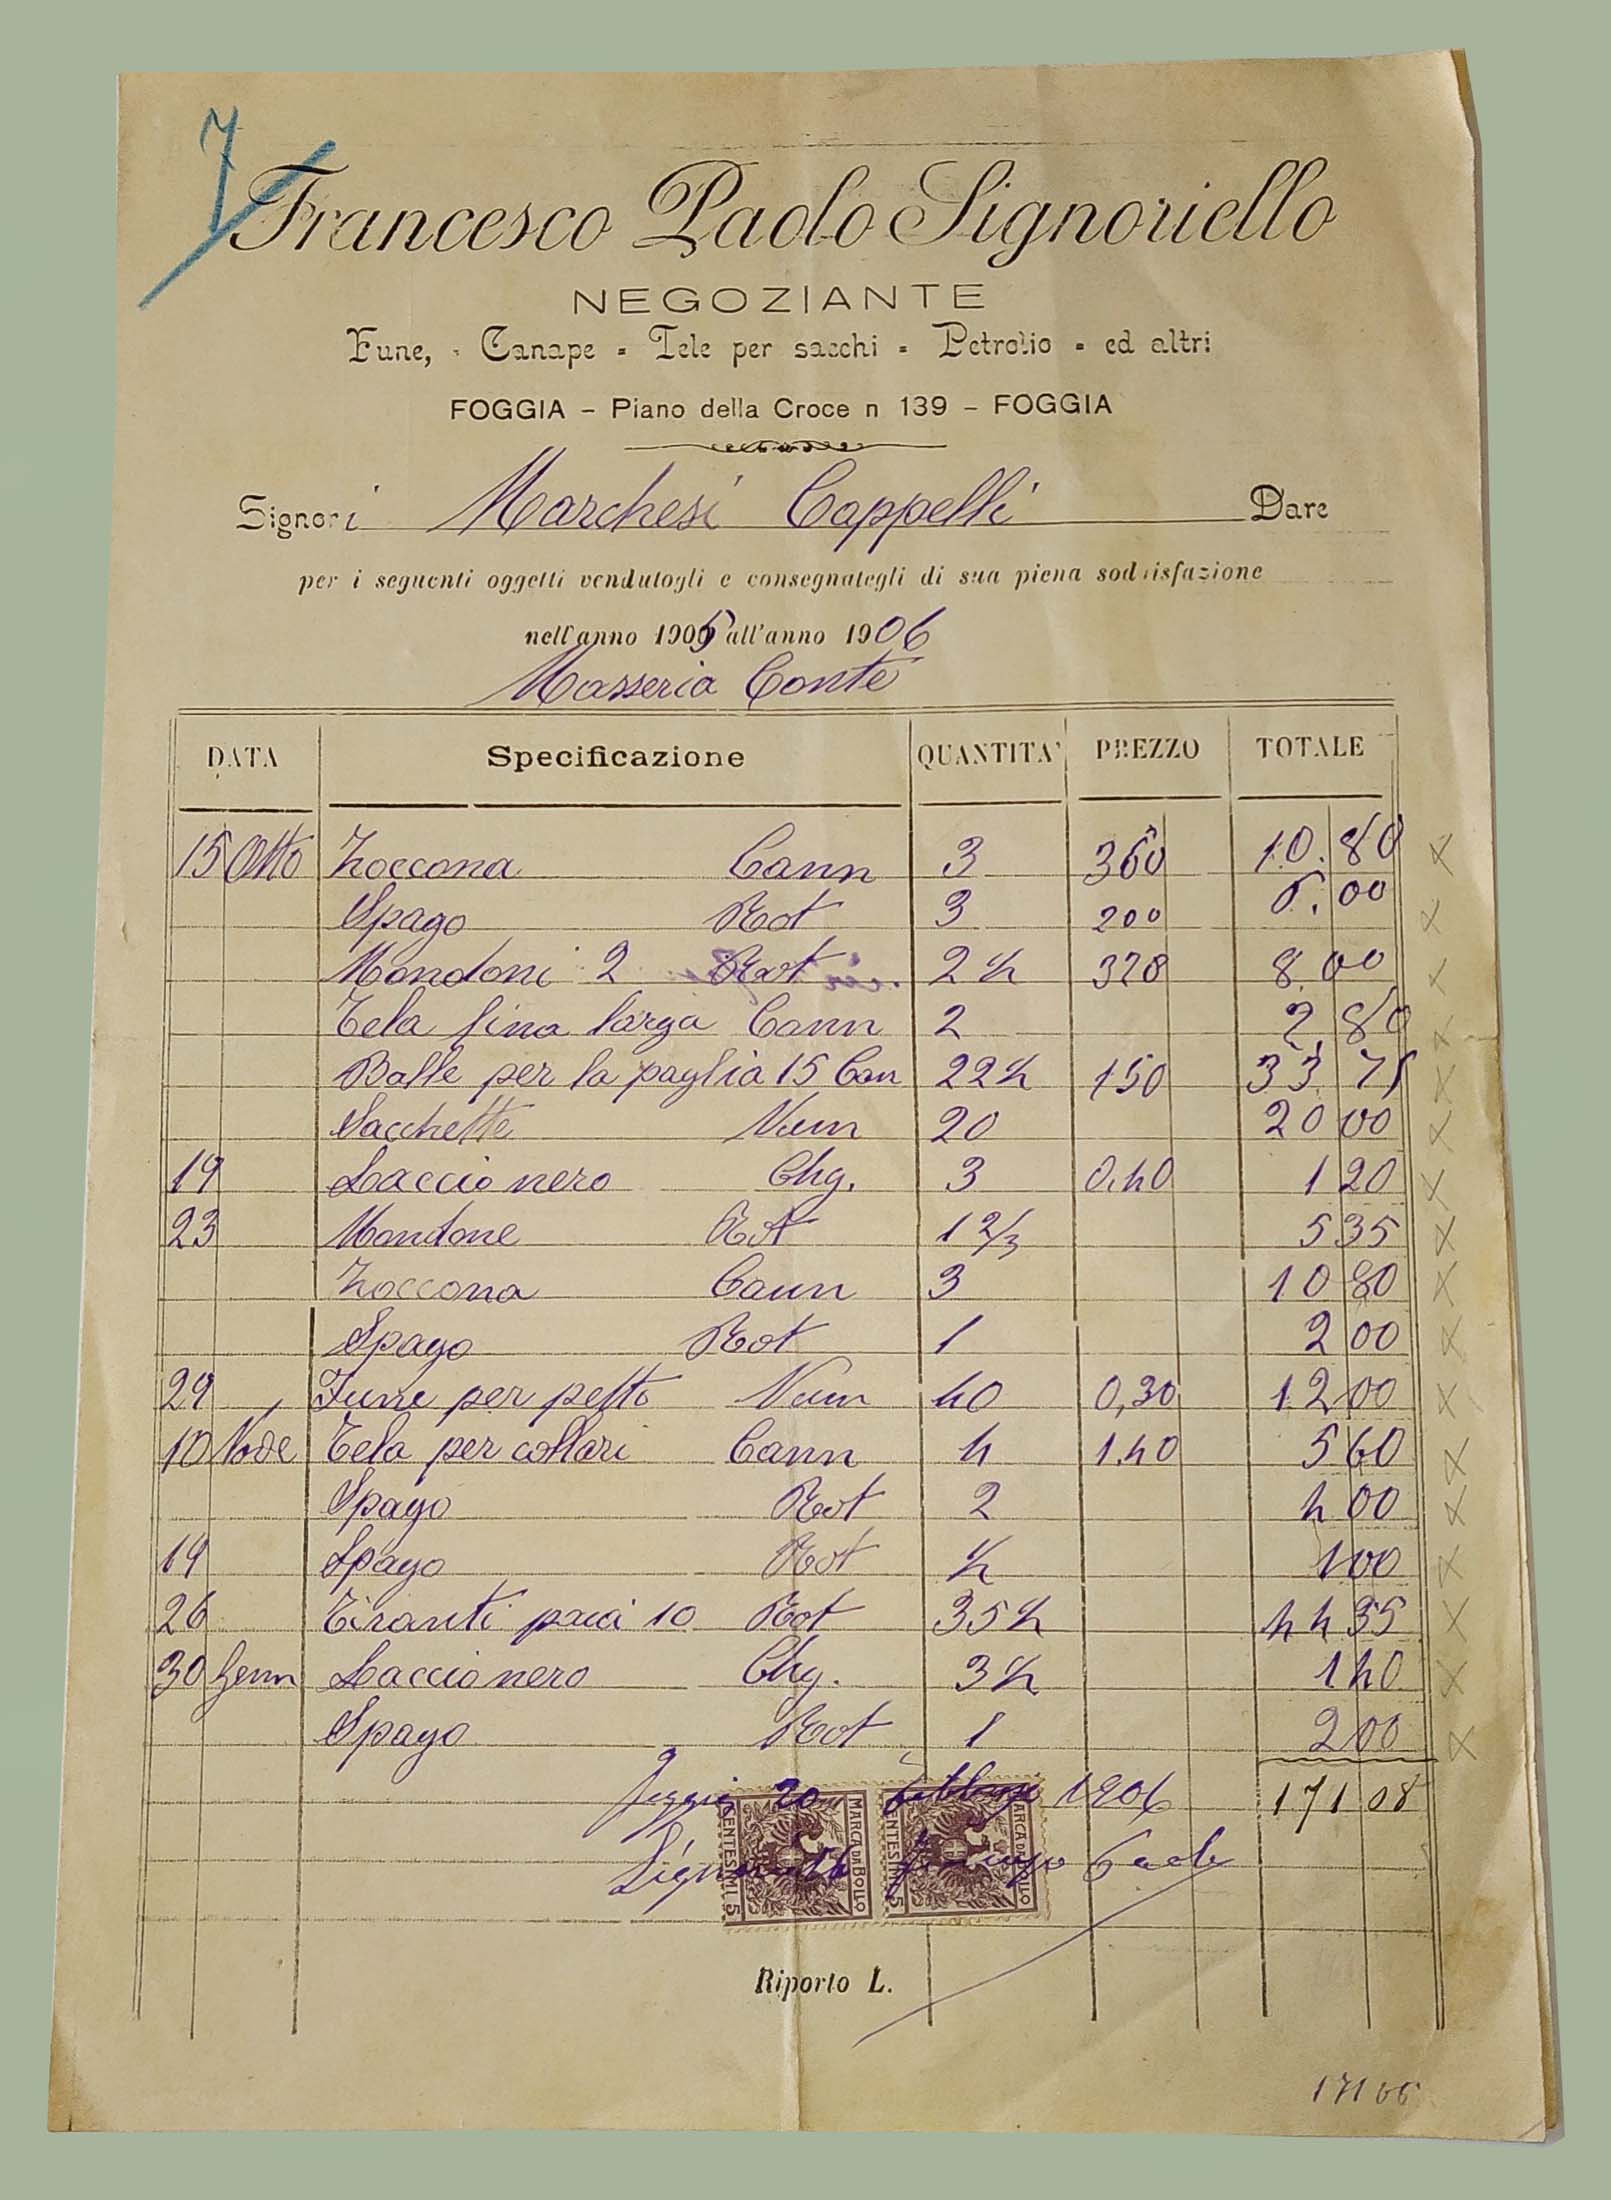 7
Francesco Paolo Signoriello
NEGOZIANTE
Fune, - Canape = Tele per sacchi = Petrolio = ed altri
FOGGIA – Piano della Croce n 139 – FOGGIA
Signori Marchesi Cappelli Dare
per i seguenti oggetti vendutogli e consegnategli di sua piena soddisfazione
nell'anno 1905 all'anno 1906
Masseria Conte
DATA Specificazione QUANTITA' PREZZO TOTALE
15 Otto Zoccona Cann 3 360 10.80
Spago Rot 3 200 6.00
Mondoni 2 Rot 2 ½ 320 8 00
Tela fina larga Cann 2 2 80
Balle per la paglia 15 Can 22 ½ 150 33 75
Sacchette Num 20 20 00
19 Laccio nero Chg. 3 0.40 1 20
23 Mondone Rot 1 2/3 5 35
Zoccona Cann 3 10 80
Spago Rot 1 2 00
29 Fune per petto Num 40 0,30 12 00
10 Nove Tela per collari Cann 4 1.40 5 60
Spago Rot 2 4 00
14 Spago Rot ½ 1 00
26 Tiranti paia 10 Rot 35 ½ 44 35
30 Genn Laccio nero Chg. 3 ½ 1 40
Spago Rot 1 2 00
Foggia 20 Febbraio 1906 171 08
Signoriello Francesco Paolo
MARCA DA BOLLO CENTESIMI 5
MARCA DA BOLLO CENTESIMI 5
Riporto L.